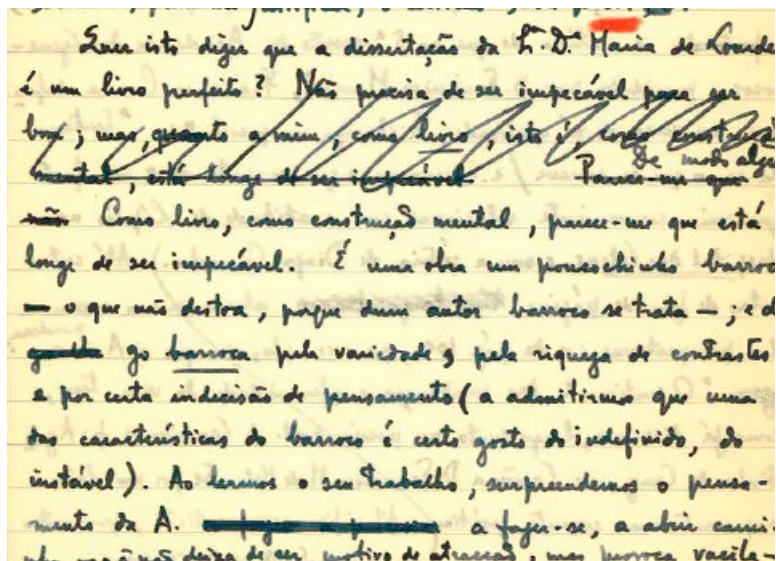 Quer isto dizer que a dissertação da Lª. Dª. Maria de Lourde
é um livro perfeito? Não precisa de ser impecável para ser
bom; mas, quanto a mim, como livro, isto é, como construção
De modo algu
mental, está longe de ser impecável. Parece-me que
não. Como livro, como construção mental, parece-me que está
longe de ser impecável. É uma obra um poucochinho barroc
— o que não destoa, porque dum autor barroco se trata —; e di
go barroca pela variedade, pela riqueza de contrastes
e por certa indecisão de pensamento (a admitirmos que uma
das características do barroco é certo gosto do indefinido, do
instável). Ao lermos o seu trabalho, surpreendemos o pensa-
mento da A. a fazer-se, a abrir cami-
não deixa de ser motivo de atracção, mas provoca vacila-